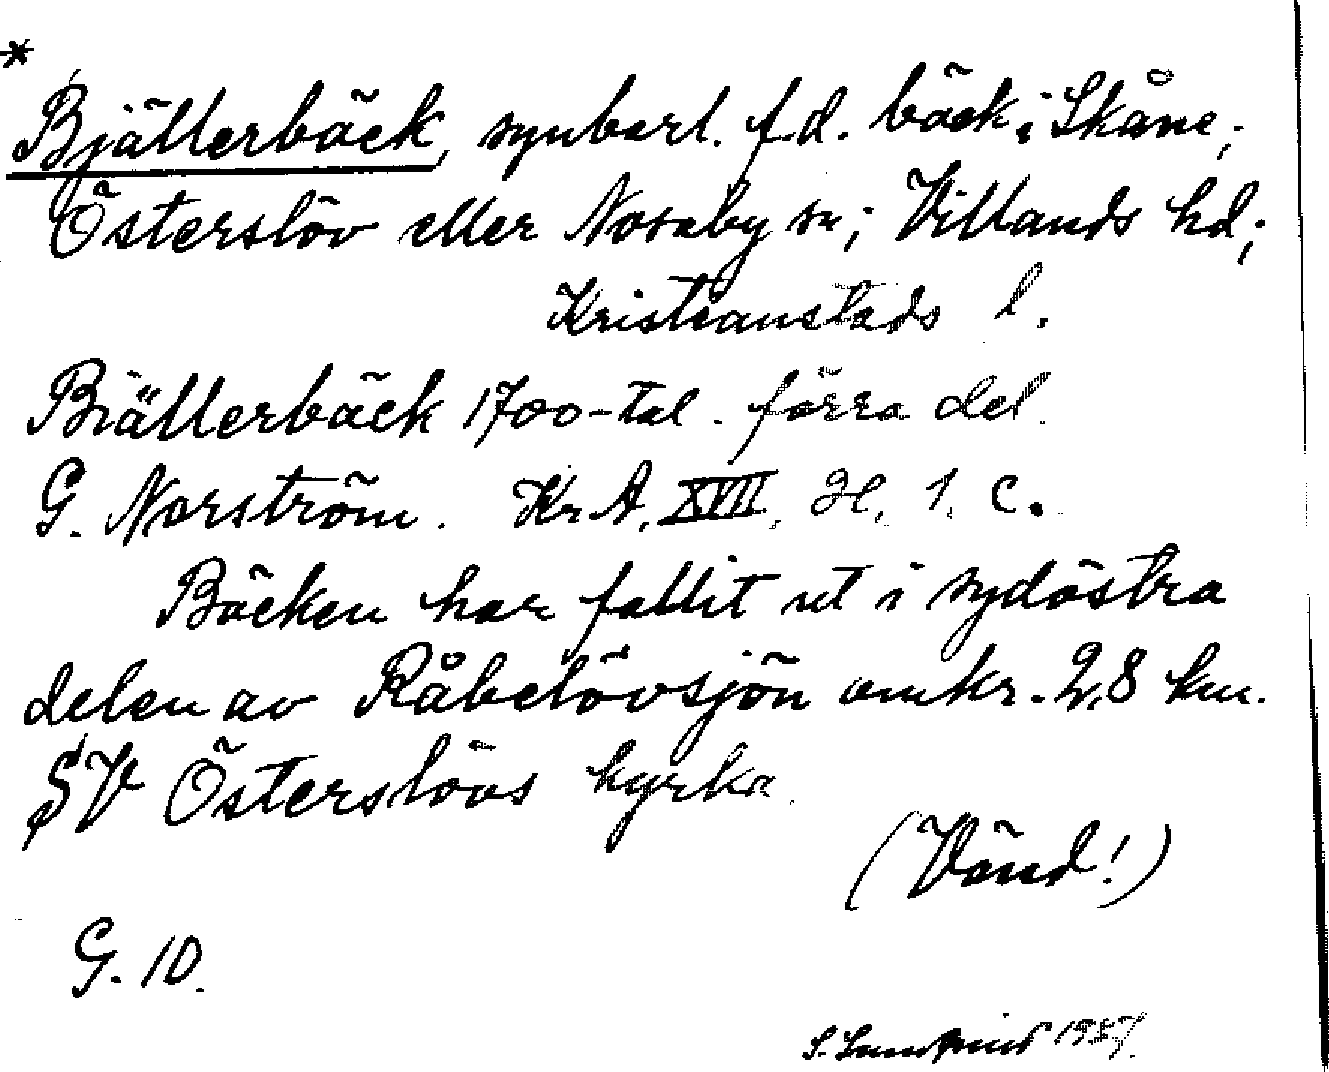 *
Bjällerbäck, synbarl. f.d. bäck i Skåne;
Österslöv eller Nosaby sn; Villands hd;
Kristianstads l.
Biällerbäck 1700-tal. förra del.
G. Norström. Kr A. XVII, H, 1. c.
Bäcken har fallit ut i sydöstra
delen av Råbelövsjön omkr. 2,8 km.
SV Österslövs kyrka.
(Vänd!)
G. 10.
S. 1957.